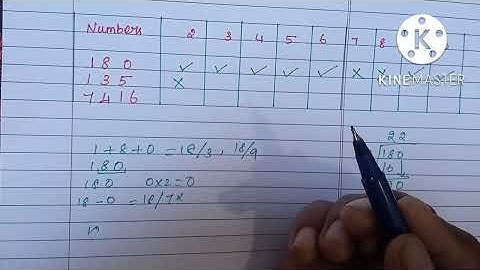 Numbers 2 3 4 5 6 7 8
180 ✓ ✓ ✓ ✓ ✓ X X ✓
135 X
7416
K
KINEMASTER
1+8+0 = 18/3, 18/9
180
180 0x2=0
18-0 = 18/7x
22
180
16